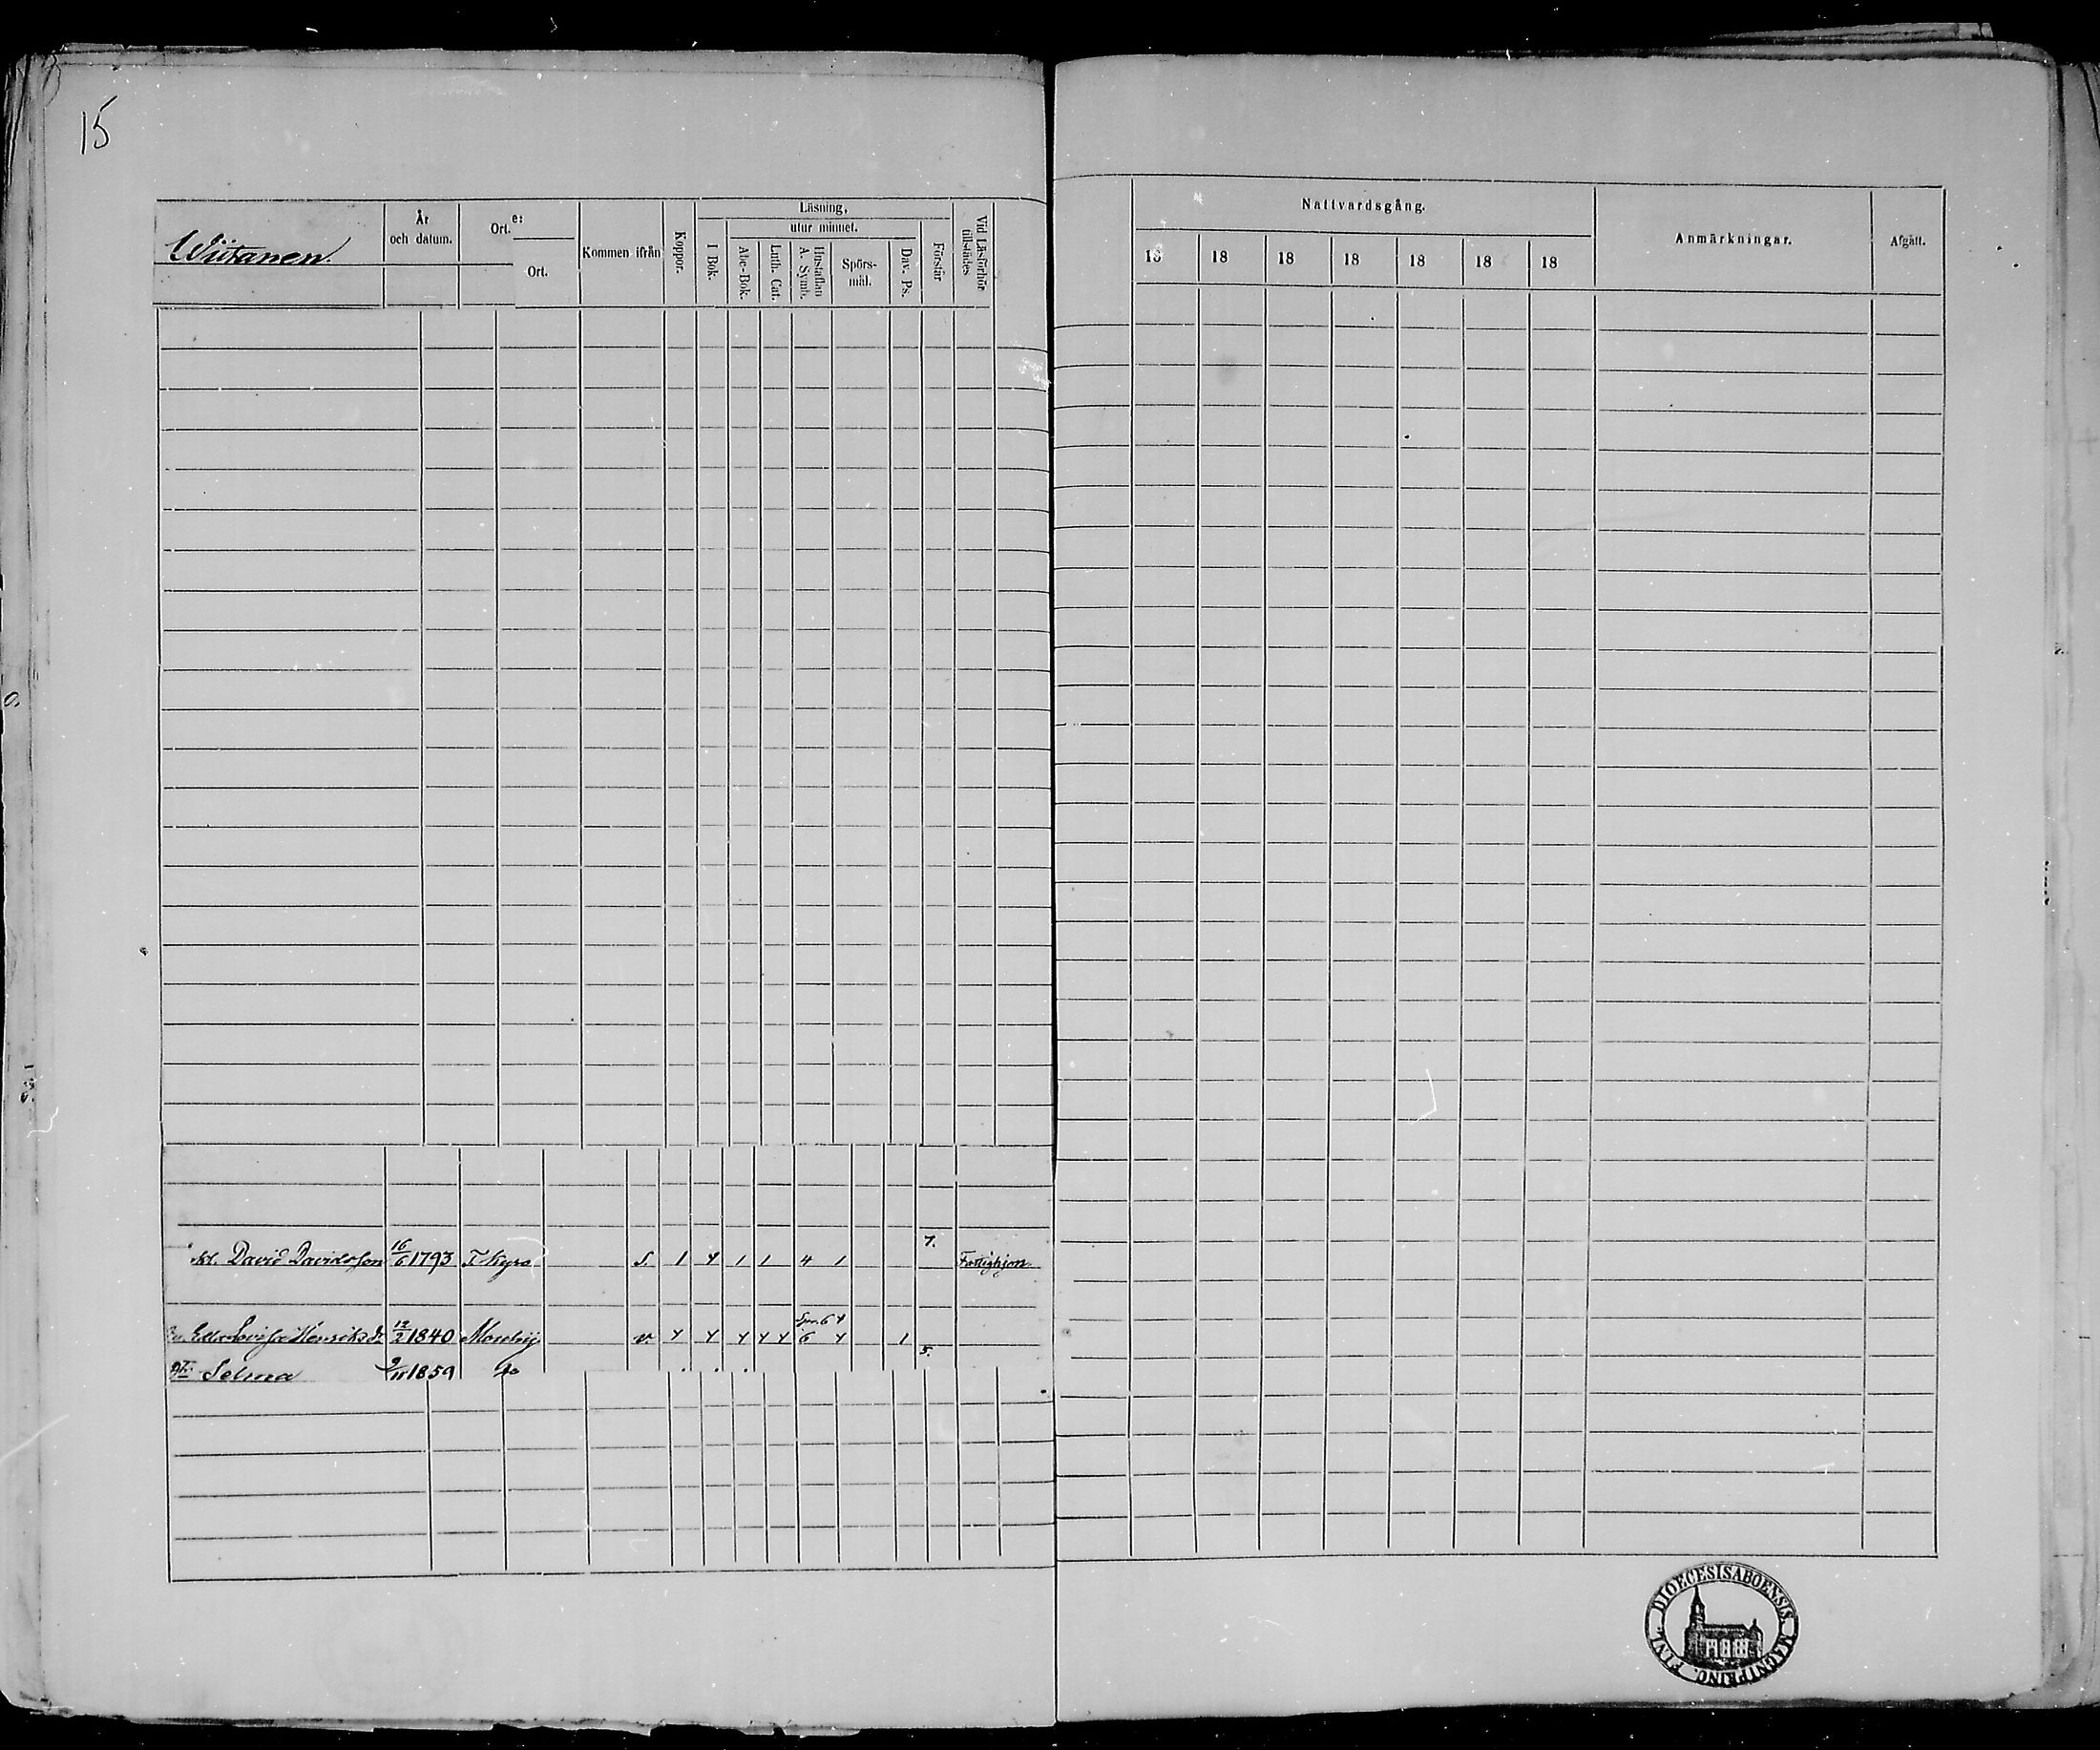 15
Wiitanen.
År och datum.
Ort.
e:
Ort.
Kommen ifrån
Koppor.
Läsning,
I Bok.
utur minnet.
Abc-Bok.
Luth. Cat.
Hustaflan A. Symb.
Spörs-mål.
Dav. Ps.
Förstår
Vid Läsförhör tillstädes
Nattvardsgång.
18 18 18 18 18 18 18
Anmärkningar.
Afgått.
7.
David Davidsson 16/6 1793 T. Kyro S. 1 4 1 1 4 1 Fattighjon.
6 4
Lovisa Henriksdr 12/2 1840 v. 4 4 4 4 4 6 4 1
5.
Selma 9/11 1859 do
DIOECESIS ABOENSIS MAGNI PRINC. FINL.